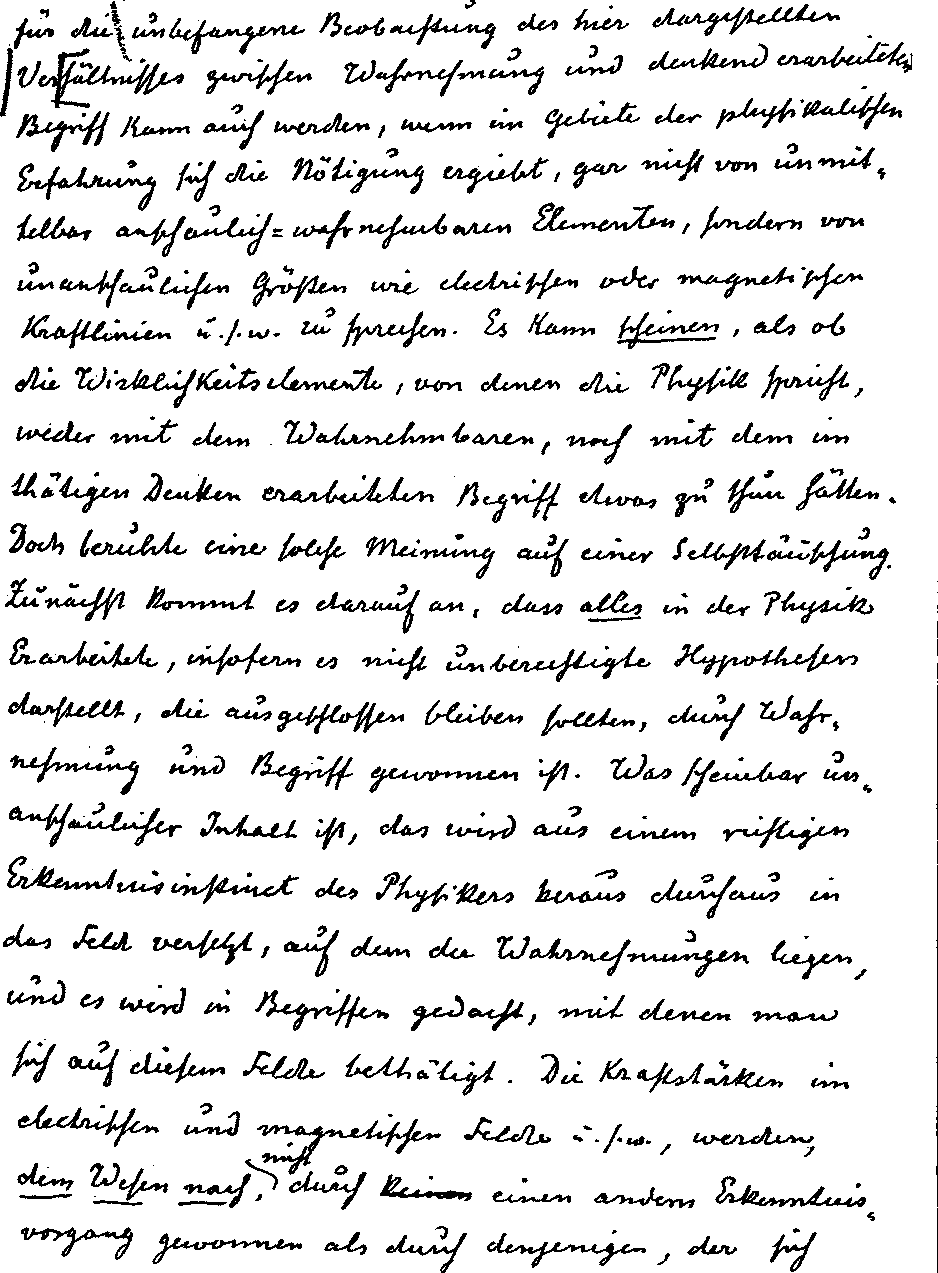 für die unbefangene Beobachtung des hier dargestellten
Verhältnisses zwischen Wahrnehmung und denkend erarbeiteten
Begriff kann auch werden, wenn im Gebiete der physikalischen
Erfahrung sich die Nötigung ergiebt, gar nicht von unmit-
telbar anschaulich=wahrnehmbaren Elementen, sondern von
unanschaulichen Größen wie electrischen oder magnetischen
Kraftlinien u.s.w. zu sprechen. Es kann scheinen, als ob
die Wirklichkeitselemente, von denen die Physik spricht,
weder mit dem Wahrnehmbaren, noch mit dem im
thätigen Denken erarbeiteten Begriff etwas zu thun hätten.
Doch beruhte eine solche Meinung auf einer Selbsttäuschung.
Zunächst kommt es darauf an, dass alles in der Physik
Erarbeitete, insofern es nicht unberechtigte Hypothesen
darstellt, die ausgeschlossen bleiben sollten, durch Wahr-
nehmung und Begriff gewonnen ist. Was scheinbar un-
anschaulicher Inhalt ist, das wird aus einem richtigen
Erkenntnisinstinct des Physikers heraus durchaus in
das Feld versetzt, auf dem die Wahrnehmungen liegen,
und es wird in Begriffen gedacht, mit denen man
sich auf diesem Felde bethätigt. Die Kraftstärken im
electrischen und magnetischen Felde u.s.w., werden,
dem Wesen nach, nicht durch keinen einen andern Erkenntnis-
vorgang gewonnen als durch denjenigen, der sich